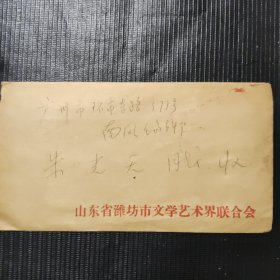 广州市环市东路 371号
南风
朱光天 同志 收
山东省潍坊市文学艺术界联合会